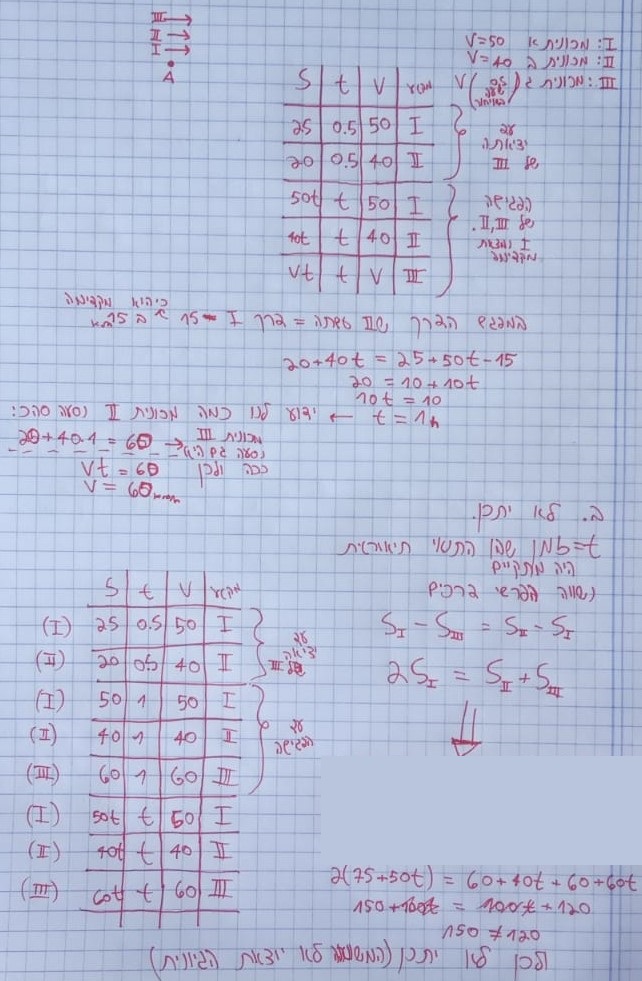 III →
II →
I →
A
I: מכונית א V=50
II: מכונית ב V=40
III: מכונית ג V
S t V
25 0.5 50 I
20 0.5 40 II
50t t 50 I
40t t 40 II
Vt t V III
עד
יציאתה
של III
הפגישה
של II, III.
I נמצאת
מקדימה
במפגש הדרך שII עשתה = דרך I - 15 כי היא מקדימה ב 15 km
20+40t = 25+50t-15
20 = 10+10t
10t = 10
t = 1h ← ידוע לנו כמה מכונית II נסעה סהכ:
20+40·1 = 60 → מכונית III נסעה גם היא
ככה ולכן Vt = 60
V = 60
ב. לא יתכן.
נשים t=
שבו התנאי תיאורטית
היה מתקיים
נשווה הפרשי דרכים
S_I - S_III = S_II - S_I
2S_I = S_II + S_III
S t V
(I) 25 0.5 50 I
(II) 20 0.5 40 II
(I) 50 1 50 I
(II) 40 1 40 II
(III) 60 1 60 III
(I) 50t t 50 I
(II) 40t t 40 II
(III) 60t t 60 III
עד
יציאה
של III
עד
הפגישה
2(75+50t) = 60+40t+60+60t
150+100t = 100t+120
150 ≠ 120
ולכן לא יתכן (המשוואה לא יוצאת הגיונית)